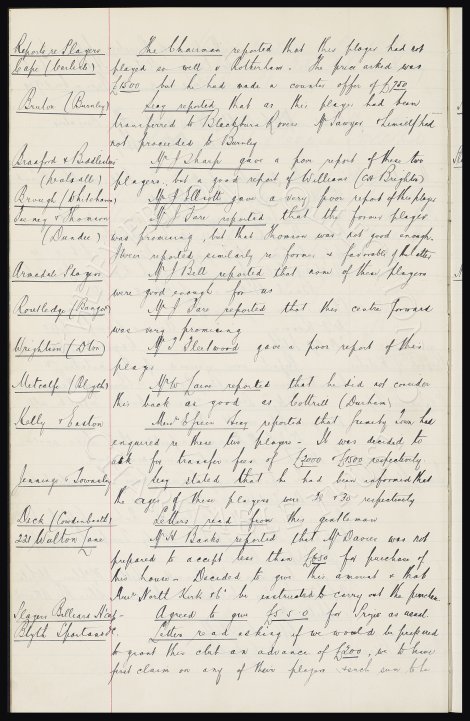 Reports re Players The Chairman reported that this player had not
Cape (Carlisle) played so well v Rotherham. The price asked was
£1500 but he had made a counter offer of £750
Bruton (Burnley) Secy reported that as this player had been
transferred to Blackburn Rovers Mr Sawyer & himself had
not proceeded to Burnley
Bradford & Biddlestone Mr J Sharp gave a poor report of these two
(Walsall) players, but a good report of Williams (CH Brighton)
Brough (Whitehaven) Mr J Elliott gave a very poor report of this player
& Thomson Mr J Fare reported that the former player
(Dundee) was promising, but that Thomson was not good enough.
reported similarly re former & favorable of the latter
Armadale Players Mr J Bell reported that none of these players
were good enough for us
Routledge (Bangor) Mr J Fare reported that this centre forward
was very promising
Wrightson (D'ton) Mr T Fleetwood gave a poor report of this
player
Metcalfe (Blyth) Mr W reported that he did not consider
this back as good as Cottrell (Durham)
Kelly & Easton Secy reported that Grimsby Town had
enquired re these two players - It was decided to
ask for transfer fees of £2000 & £1500 respectively
Jennings & Townsley Secy stated that he had been informed that
the ages of these players were & 30 respectively
Deck (Cowdenbeath) Letters read from this gentleman
221 Walton Lane Mr H Banks reported that Mr Davies was not
prepared to accept less than £650 for purchase of
this house - Decided to give this amount & that
North Kirk & Co be instructed to carry out the purchase
Players Billiard H'cap - Agreed to give £5 5 0 for Prizes as usual.
Blyth Spartans Letter read asking if we would be prepared
to grant this club an advance of £200, we to have
first claim on any of their players & such sum to be